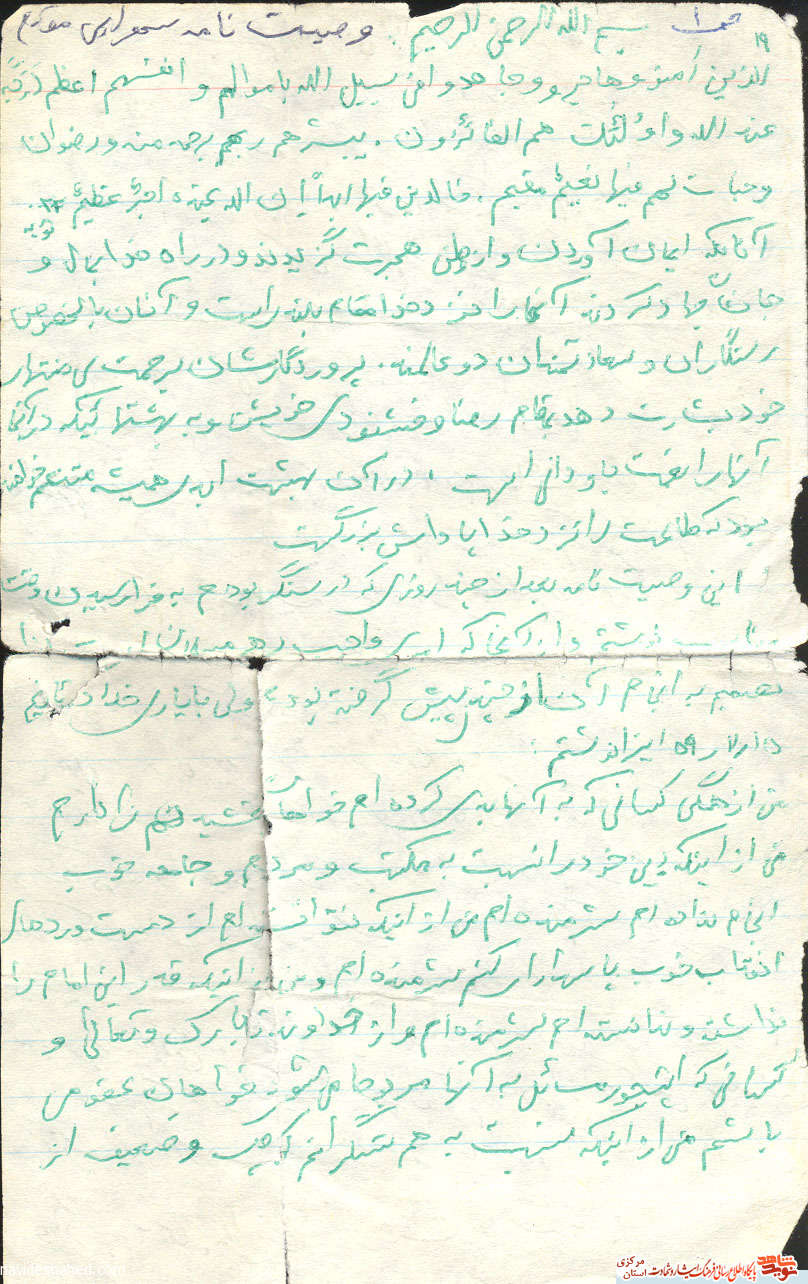 بسم الله الرحمن الرحیم . وصیت نامه
۱۹
الذین آمنو و هاجرو و جاهدو افی سبیل الله باموالهم و انفسهم اعظم درجة
عند الله و اولئک هم الفائزون . یبشرهم ربهم برحمه منه و رضوان
و جنات لهم فیها نعیمٌ مقیم . خالدین فیها ابداً اِن الله عنده اجرٌ عظیمٌ ۲۲ توبه
آنانکه ایمان آوردن و از وطن هجرت گزیدند و در راه خدا بمال و
جانشان جهاد کردند آنها را نزد خدا مقام بلند راست و آنان بالخصوص
رستگاران و سعادتمندان دو عالمند . پروردگارشان برحمت بی منتهای
خود بشارت دهد بمقام رضا و خشنودی خویش و به بهشتهائیکه در آنجا
آنها را نعمت جاودانی است ، در آن بهشت ابدی همیشه متنعم خواهند
بود که طاعت را نزد خدا پاداش بزرگست
این وصیت نامه بعد از چند روزی که در سنگر بودم به فرا رسیدن وقت
مناسب نوشتم و از آنجا که امری واجب
تصمیم به انجام آن از چندی پیش گرفته بودم ولی با یاری خدا در تاریخ
۵۹ اینرا نوشتم .
من از همگی کسانی که به آنها بدی کرده ام خواهان بخشیدنم را دارم
من از اینکه دین خود را نسبت به مکتب و مردم و جامعه خوب
انجام نداده ام شرمنده ام من از اینکه نتوانسته ام از دست وردهای
انقلاب خوب پاسداری کنم شرمنده ام و من از اینکه قدر این امام را
نداشته و نداسته ام شرمنده ام و از خداوند تبارک و تعالی و
کسانی که اینجور مسائل به آنها مربوط می شود خواهان عفو می
باشم من از اینکه نسبت به هم سنگرانم کوچک و ضعیف از
پایگاه اطلاع رسانی فرهنگ ایثار و شهادت
استان مرکزی
نوید شاهد